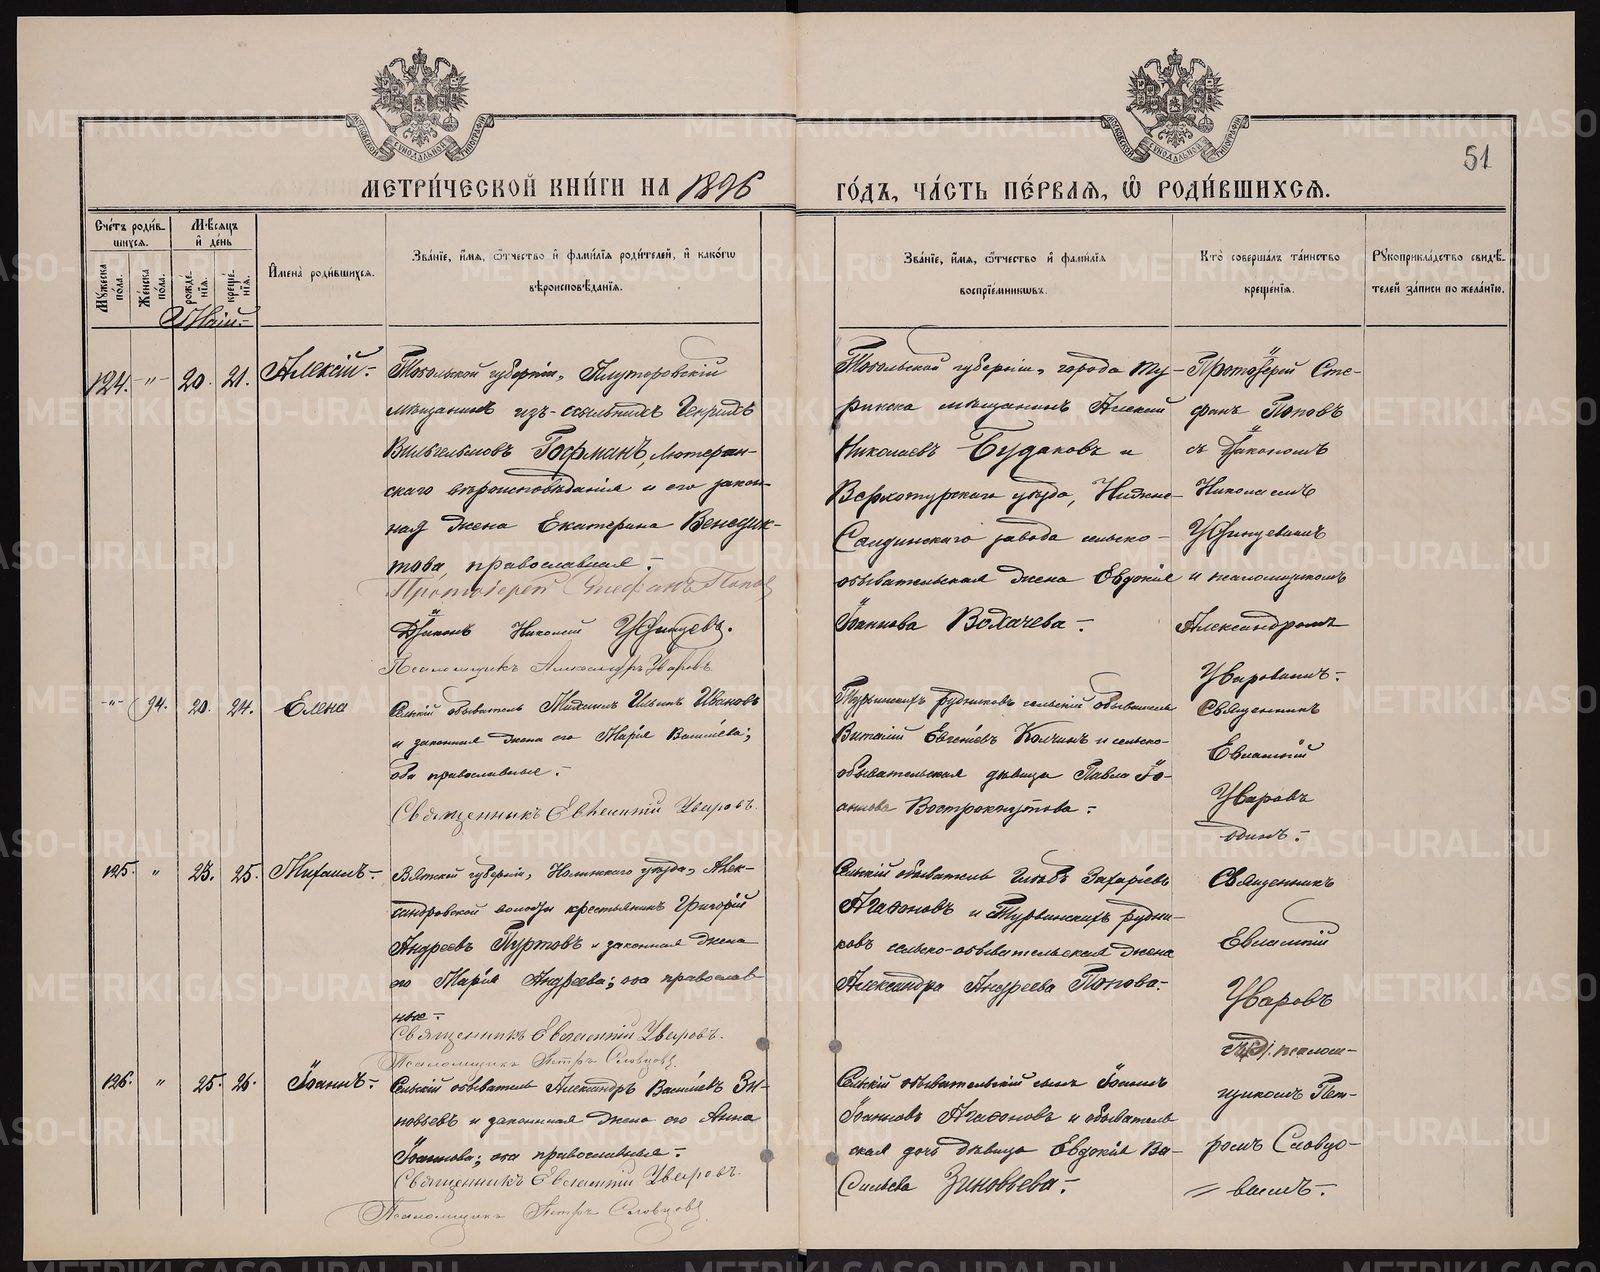 51
МЕТРИ́ЧЕСКОЙ КНИ́ГИ НА 1896 ГО́ДЪ, ЧА́СТЬ ПЕ́РВАѦ, Ѡ҆ РОДИ́ВШИХСѦ.
Сче́тъ роди́в-
шихсѧ.
Мꙋ́жеска по́ла.
Же́нска по́ла.
Мѣ́сѧцъ
и҆ де́нь
рожде́-
нїѧ.
креще́-
нїѧ.
И҆мена̀ роди́вшихсѧ.
Зва́нїе, и҆́мѧ, ѻ҆́тчество и҆ фами́лїѧ роди́телей, и҆ како́гѡ
вѣроисповѣ́данїѧ.
Зва́нїе, и҆́мѧ, ѻ҆́тчество и҆ фами́лїѧ
воспрїе́мникѡвъ.
Кто̀ соверша́лъ та́инство
креще́нїѧ.
Рꙋкоприкла́дство свидѣ́-
телей за́писи по жела́нїю.
Маій.
124. -"- 20. 21. Алексій.-
Тобольской губерніи, Ялуторовскій
мѣщанинъ изъ-ссыльныхъ Генрихъ
Вильгельмовъ Гофманъ, Лютеран-
скаго вѣроисповѣданія и его закон-
ная жена Екатерина Венедик-
това, православная.-
Протоіерей Стефанъ Попов
Діаконъ Николай Усѳинцевъ.
Псаломщикъ Александръ Уваровъ
Тобольской губерніи, города Ту-
ринска мѣщанинъ Алексій
Николаевъ Будаковъ и
Верхотурскаго уѣзда, Нижне-
Салдинскаго завода сельско-
обывательская жена Евдокія
Іоаннова Волачева.-
Протоіерей Сте-
фанъ Поповъ
съ діакономъ
Николаемъ
и псаломщикомъ
Александромъ
Уваровымъ.-
-"- 94. 20. 24. Елена
Сельскій обыватель Михаилъ Ильинъ Ивановъ
и законная жена его Марія Васильева;
оба православные.-
Священникъ Евлампій Уваровъ.
Турьинскихъ рудниковъ сельскій обыватель
Виталій Евгеніевъ Колчинъ и сельско-
обывательская дѣвица Павла Іо-
аннова Вострокнутова.-
Священникъ
Евлампій
Уваровъ
одинъ.-
125. " 23. 25. Михаилъ.-
Вятской губерніи, Нолинскаго уѣзда, Алек-
сандровской волости крестьянинъ Григорій
Андреевъ Пуртовъ и законная жена
его Марія Андреева; оба православ-
ные.-
Священникъ Евлампій Уваровъ.
Псаломщикъ Петръ Словцовъ
Сельскій обыватель Глѣбъ Захаріевъ
Агафоновъ и Турьинскихъ рудни-
ковъ сельско-обывательская жена
Александра Андреева Попова.-
Священникъ
Евлампій
Уваровъ
псалом-
щикомъ Пет-
ромъ Словцо-
вымъ.-
126. " 25. 26. Іоаннъ.-
Сельскій обыватель Александръ Васильевъ Зи-
новьевъ и законная жена его Анна
Іоаннова; оба православные.-
Священникъ Евлампій Уваровъ.
Псаломщикъ Петръ Словцовъ
Сельскій обывательскій сынъ Іоаннъ
Іоанновъ Агафоновъ и обыватель
ская дочь дѣвица Евдокія Ва-
сильева Зиновьева.-